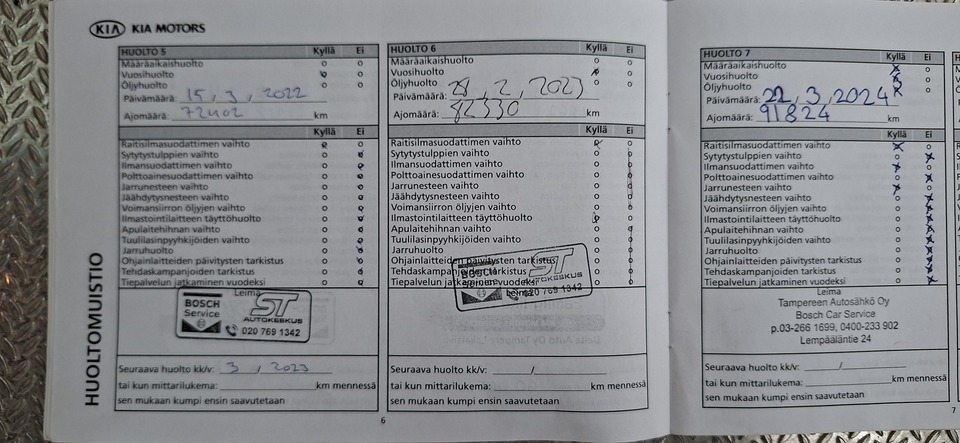 KIA KIA MOTORS
HUOLTOMUISTIO
HUOLTO 5 Kyllä Ei
Määräaikaishuolto o o
Vuosihuolto o o
Öljyhuolto o o
Päivämäärä: 15, 3, 2022
Ajomäärä: 72402 km
Kyllä Ei
Raitisilmasuodattimen vaihto
Sytytystulppien vaihto
Ilmansuodattimen vaihto
Polttoainesuodattimen vaihto
Jarrunesteen vaihto
Jäähdytysnesteen vaihto
Voimansiirron öljyjen vaihto
Ilmastointilaitteen täyttöhuolto
Apulaitehihnan vaihto
Tuulilasinpyyhkijöiden vaihto
Jarruhuolto
Ohjainlaitteiden päivitysten tarkistus
Tehdaskampanjoiden tarkistus
Tiepalvelun jatkaminen vuodeksi
Leima
BOSCH
Service
ST
AUTOKESKUS
020 769 1342
Seuraava huolto kk/v: 3, 2023
tai kun mittarilukema: km mennessä
sen mukaan kumpi ensin saavutetaan
6
HUOLTO 6 Kyllä Ei
Määräaikaishuolto o o
Vuosihuolto o
Öljyhuolto o o
Päivämäärä: 28, 2, 2023
Ajomäärä: 82330 km
Kyllä Ei
Raitisilmasuodattimen vaihto
Sytytystulppien vaihto
Ilmansuodattimen vaihto
Polttoainesuodattimen vaihto
Jarrunesteen vaihto
Jäähdytysnesteen vaihto
Voimansiirron öljyjen vaihto
Ilmastointilaitteen täyttöhuolto
Apulaitehihnan vaihto
Tuulilasinpyyhkijöiden vaihto
Jarruhuolto
Ohjainlaitteiden päivitysten tarkistus
Tehdaskampanjoiden tarkistus
Tiepalvelun jatkaminen vuodeksi
Leima
BOSCH
Service
ST
AUTOKESKUS
020 769 1342
Seuraava huolto kk/v: /
tai kun mittarilukema: km mennessä
sen mukaan kumpi ensin saavutetaan
HUOLTO 7 Kyllä Ei
Määräaikaishuolto x o
Vuosihuolto x o
Öljyhuolto x o
Päivämäärä: 22, 3, 2024
Ajomäärä: 91824 km
Kyllä Ei
Raitisilmasuodattimen vaihto
Sytytystulppien vaihto
Ilmansuodattimen vaihto
Polttoainesuodattimen vaihto
Jarrunesteen vaihto
Jäähdytysnesteen vaihto
Voimansiirron öljyjen vaihto
Ilmastointilaitteen täyttöhuolto
Apulaitehihnan vaihto
Tuulilasinpyyhkijöiden vaihto
Jarruhuolto
Ohjainlaitteiden päivitysten tarkistus
Tehdaskampanjoiden tarkistus
Tiepalvelun jatkaminen vuodeksi
Leima
Tampereen Autosähkö Oy
Bosch Car Service
p.03-266 1699, 0400-233 902
Lempääläntie 24
Seuraava huolto kk/v: /
tai kun mittarilukema: km mennessä
sen mukaan kumpi ensin saavutetaan
7